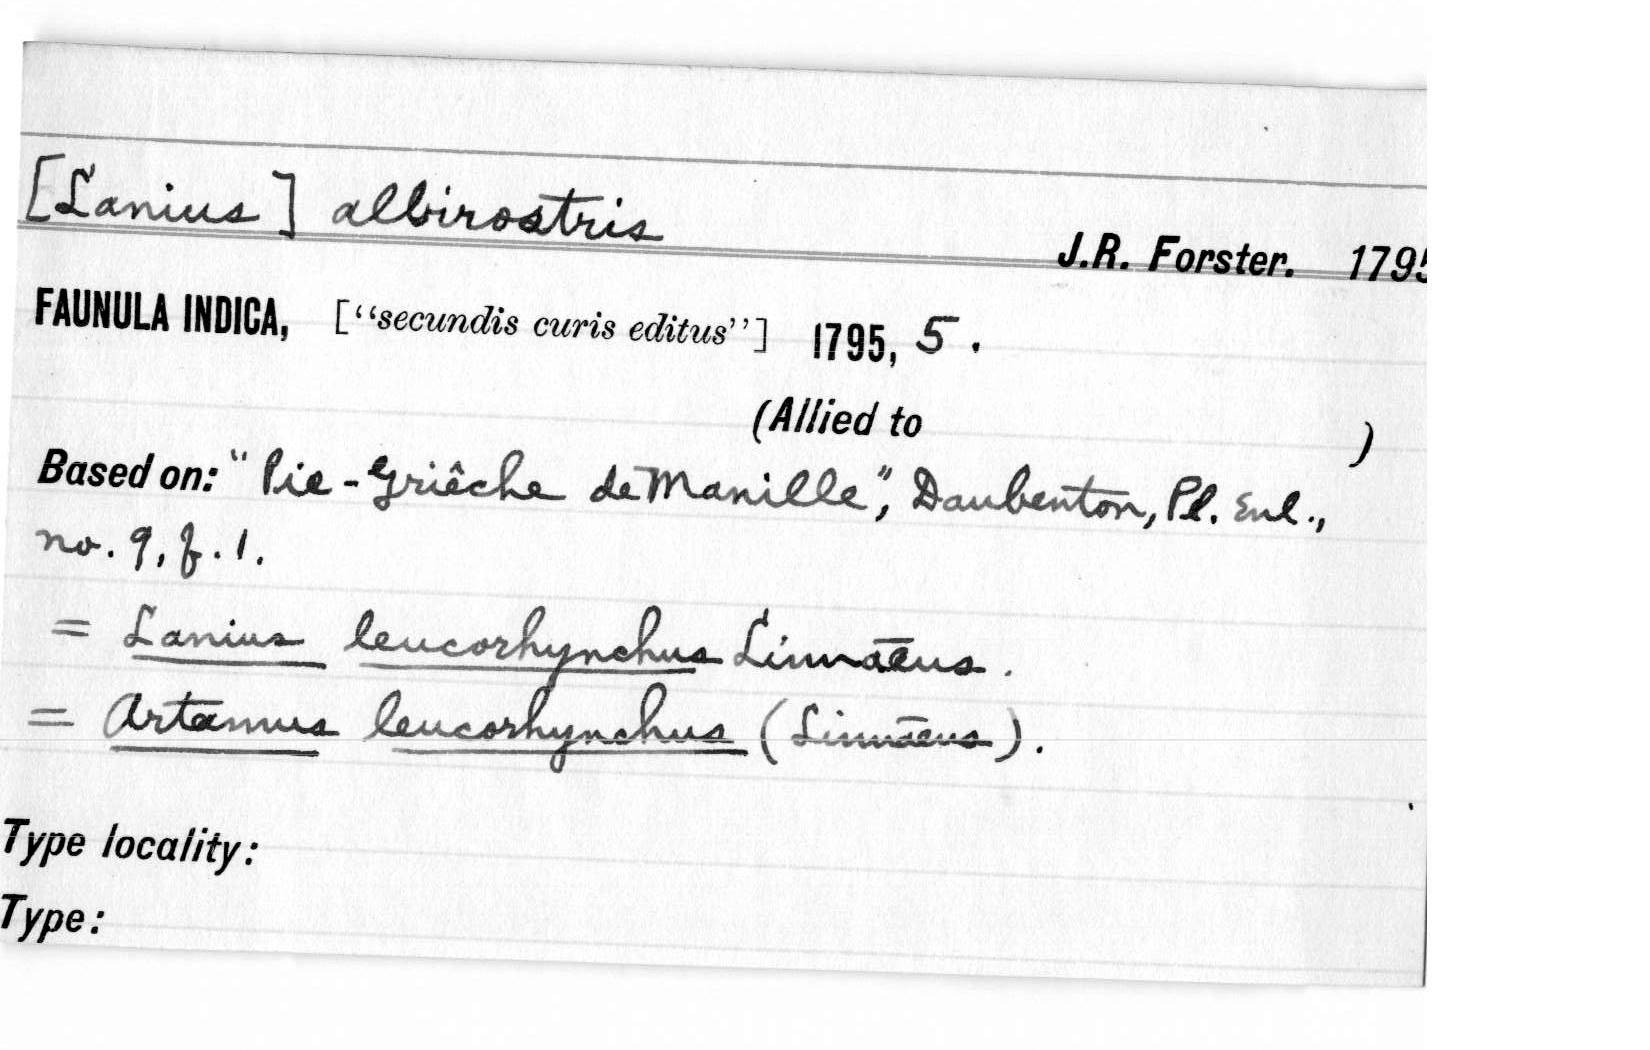 [Lanius] albirostris
J.R. Forster. 1795
FAUNULA INDICA, [“secundis curis editus”] 1795, 5.
(Allied to )
Based on: "Pie-Grièche de Manille", Daubenton, Pl. Enl.,
no. 9, f. 1.
= Lanius leucorhynchus Linnaeus.
= Artamus leucorhynchus (Linnaeus).
Type locality:
Type: